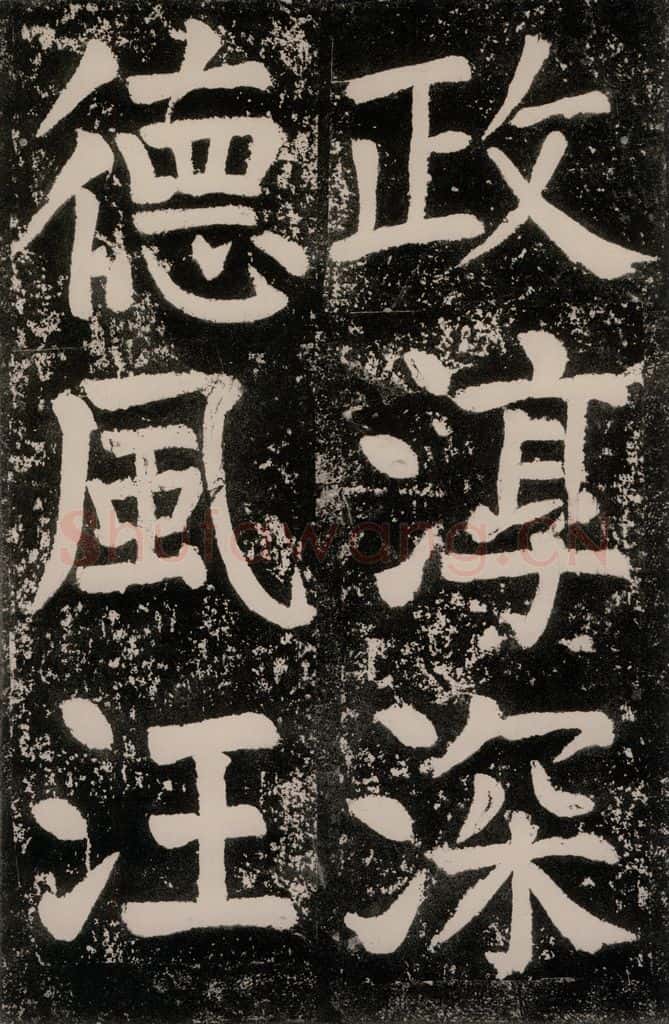 政淳深
德風汪
Shufawang.CN